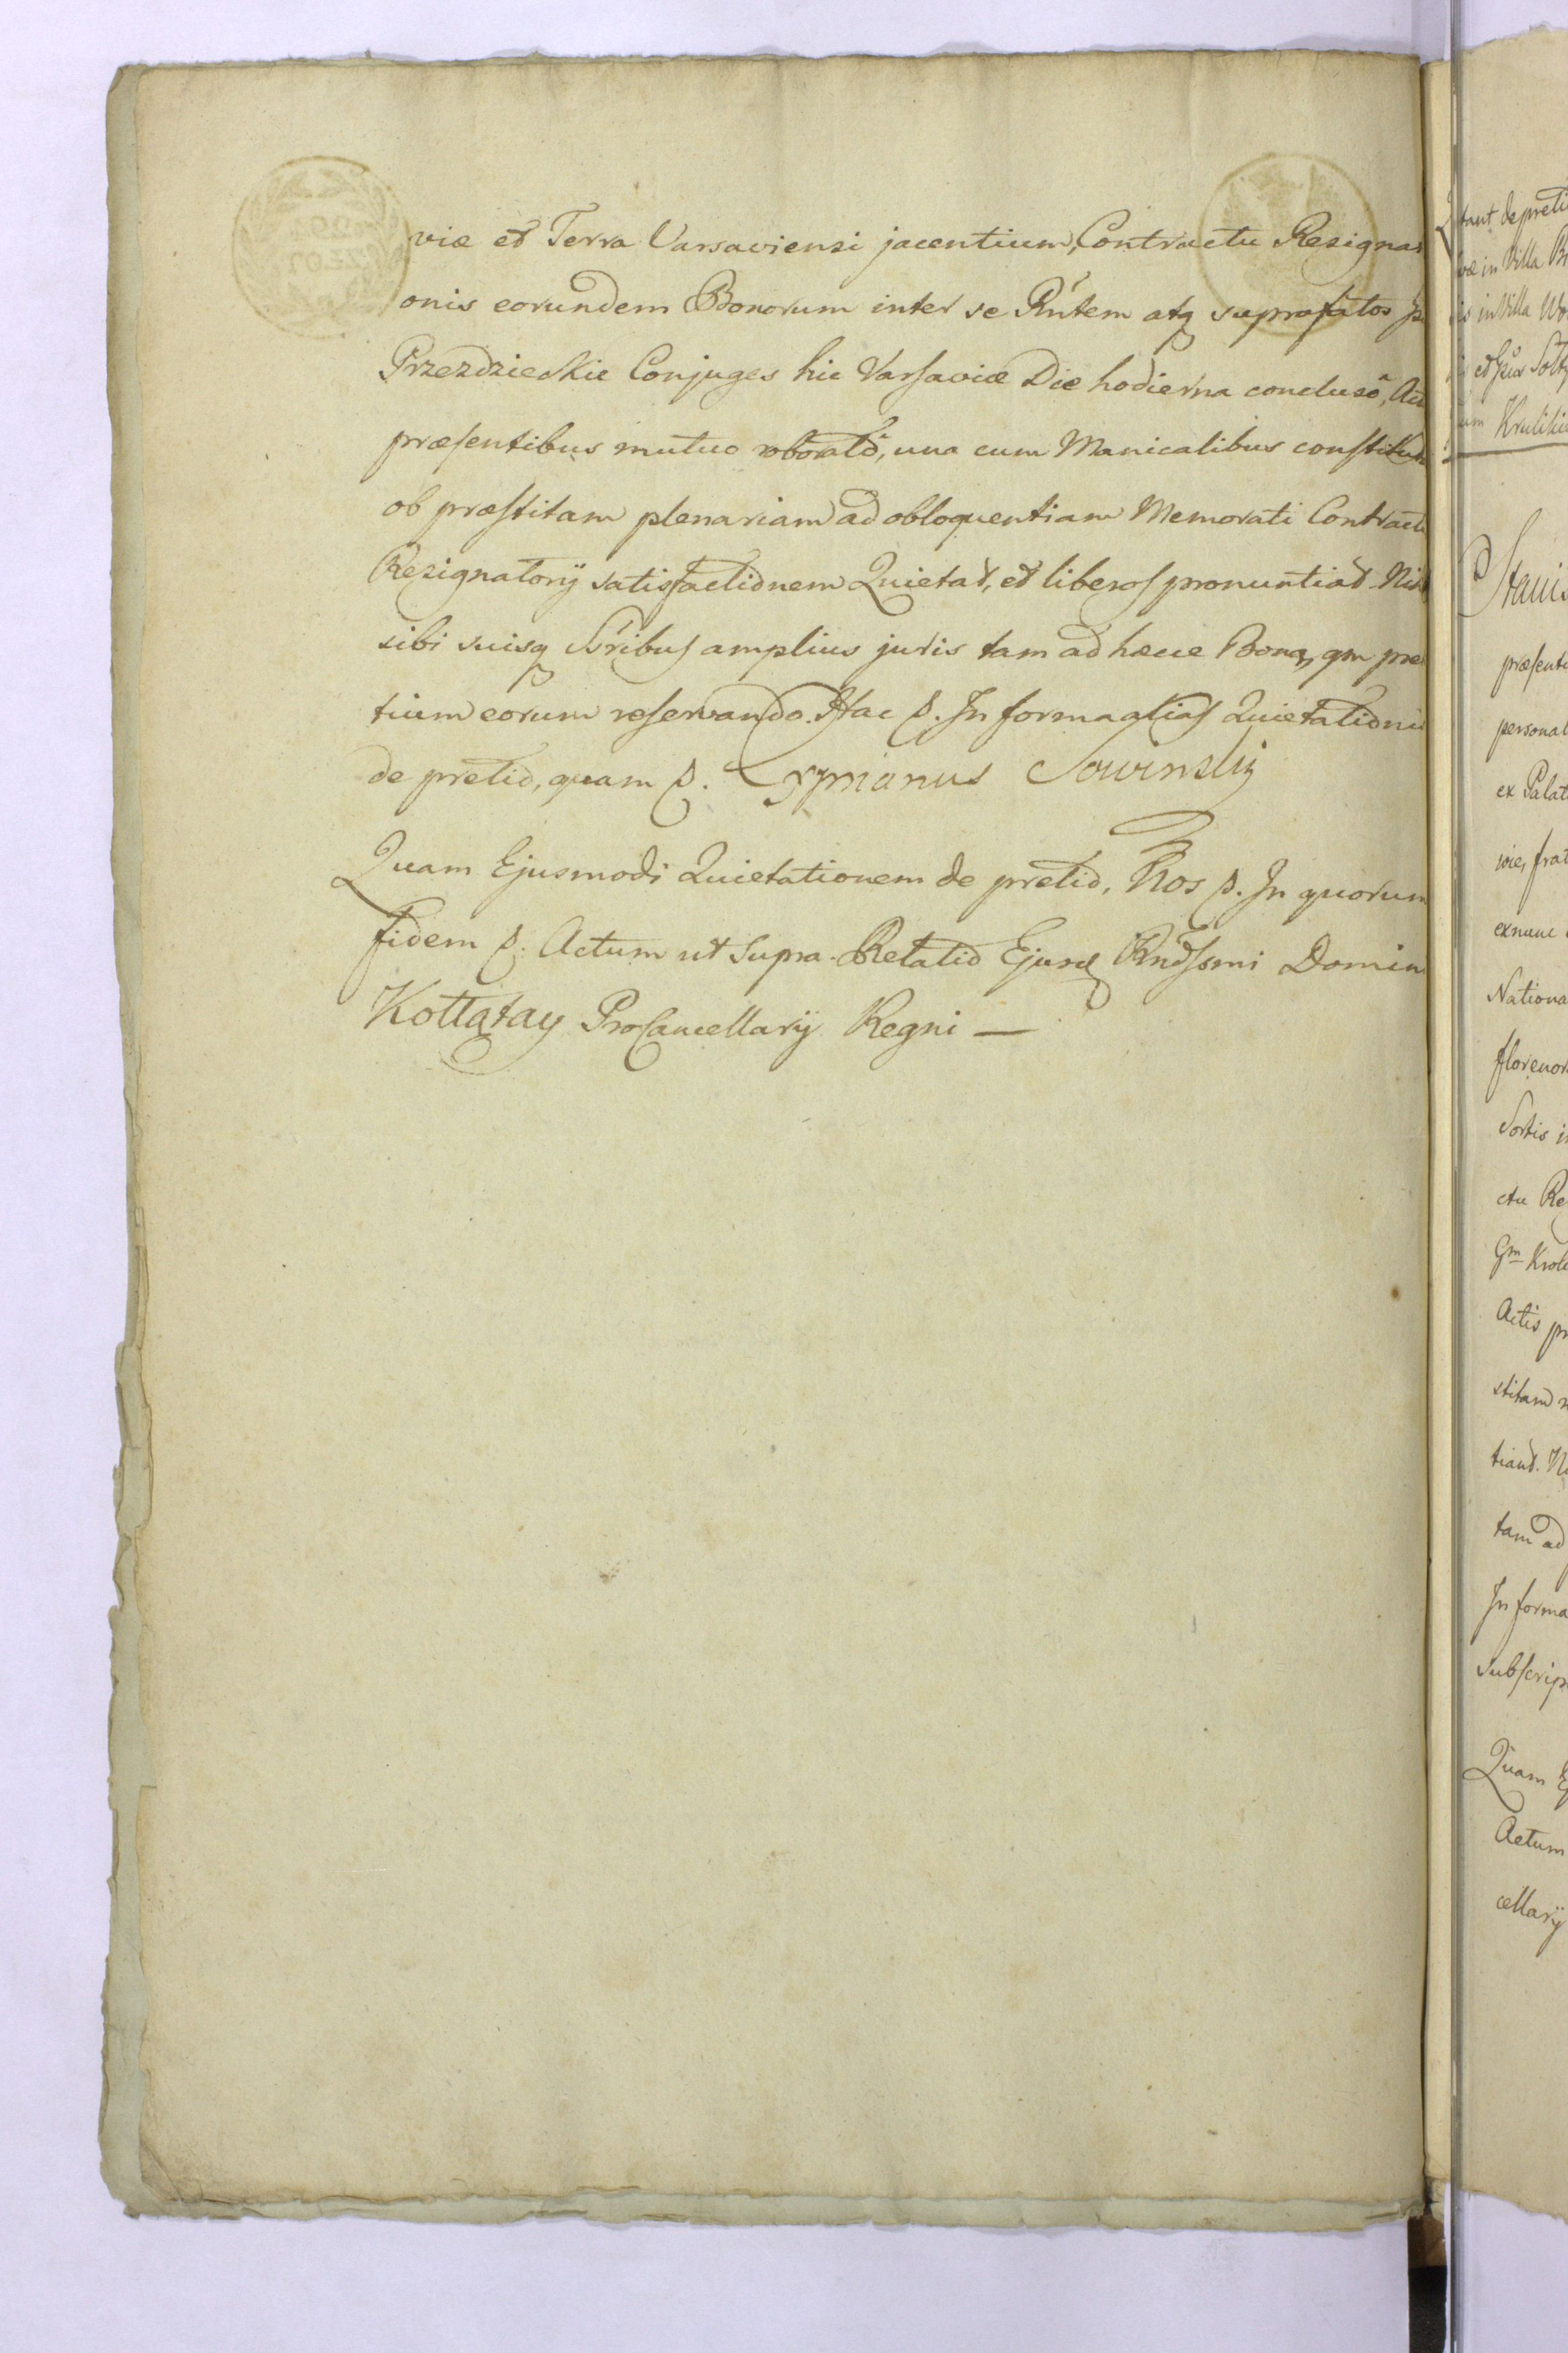 viæ et Terra Varsaviensi jacentium, Contractu Resignati
onis eorundem Bonorum inter se Rńtem atq suprafatos
Przezdzieckie Conjuges hic Varsaviæ Die hodierna conclusô,
præsentibus mutuo roboratô, una cum Manicalibus constitutis
ob præstitam plenariam ad obloquentiam Memorati Contractu
Resignatorÿ satisfactionem Quietat, et liberos pronuntiat Nil
sibi suisq Sŕibus amplius juris tam ad hæce Bona, qm pre
tium eorum reservando. Hac p. In forma alias Quietationis
de pretio, quam p. Cyprianus Sowinsky
Quam Ejusmodi Quietationem de pretio, Nos p. In quorum
fidem p. Actum ut supra. Relatio Ejusd Rndssmi Domini
Kołłątay ProCancellarÿ Regni —
tant de preti
væ in Villa
in Villa
Stanis
præsent
personal
ex Palat
viæ, frat
exnunc
Nationa
florenor
Sortis
ctu Re
Gm Krol
Actis pr
stitam
tiant. N
tam ad
In forma
subscrip
Quam
Actum
cellarÿ